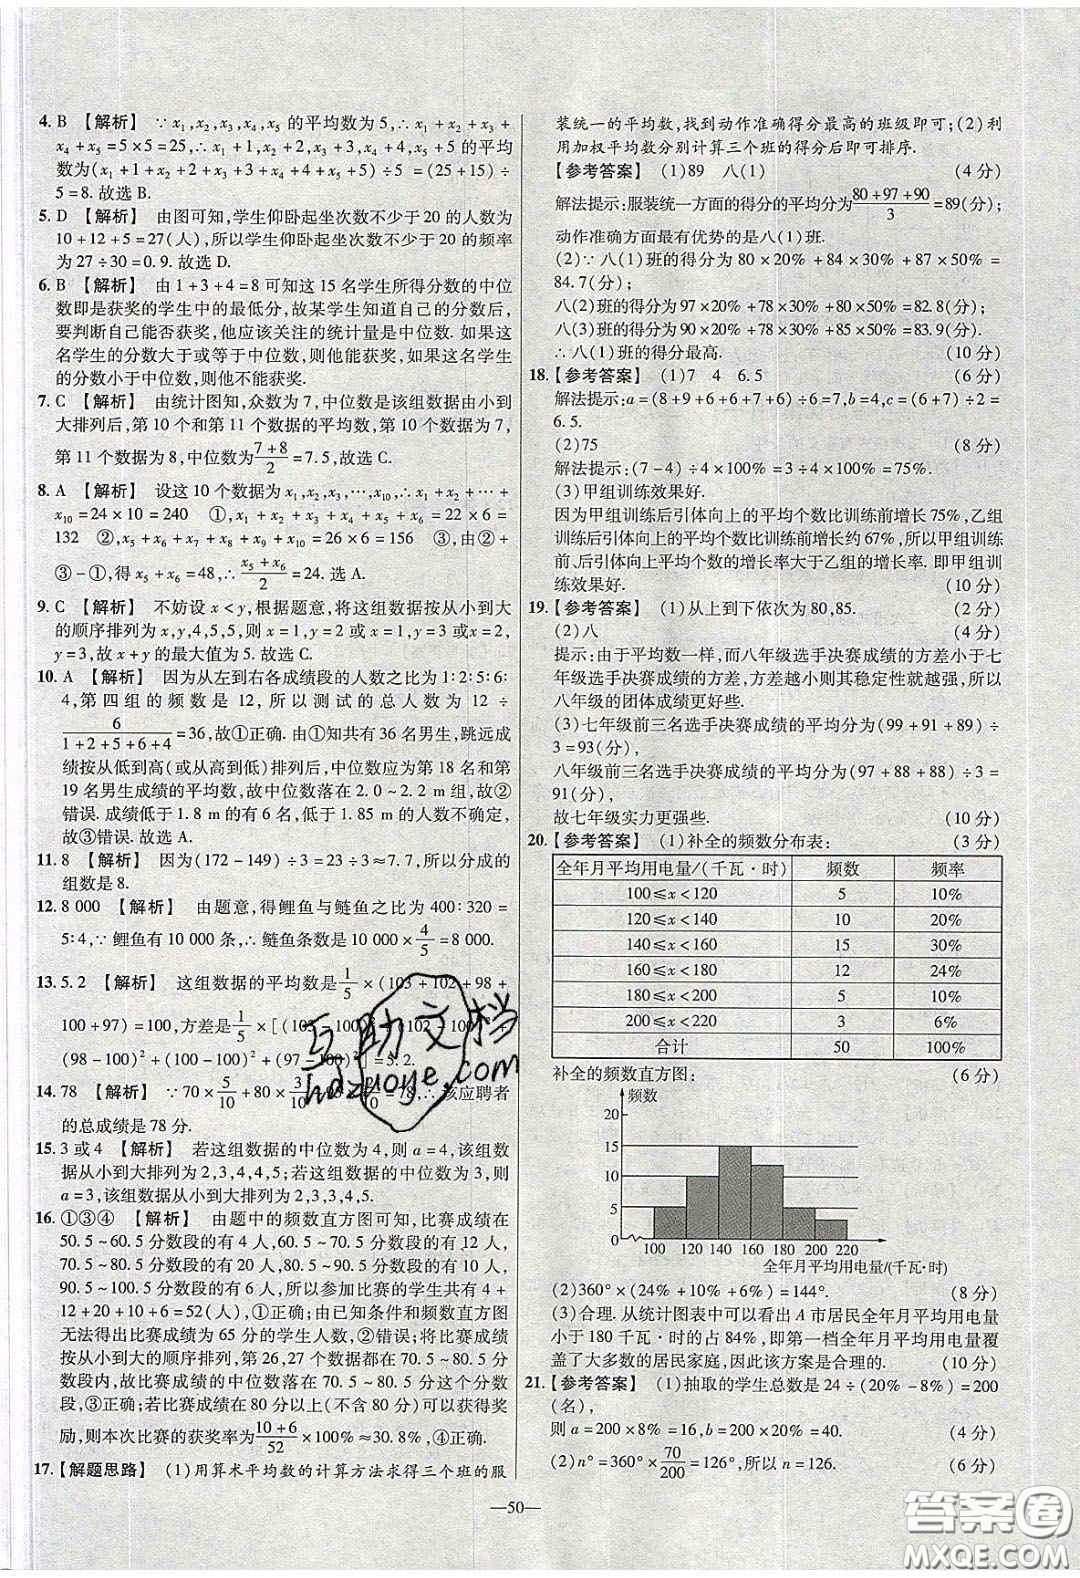 4. B 【解析】 ∵x₁,x₂,x₃,x₄,x₅ 的平均数为 5,∴x₁+x₂+x₃+
x₄+x₅=5×5=25,∴x₁+1,x₂+2,x₃+3,x₄+4,x₅+5 的平
均数为(x₁+1+x₂+2+x₃+3+x₄+4+x₅+5)÷5=(25+15)÷
5=8. 故选 B.
5. D 【解析】 由图可知,学生仰卧起坐次数不少于 20 的人数为
10+12+5=27(人),所以学生仰卧起坐次数不少于 20 的频率
为 27÷30=0.9. 故选 D.
6. B 【解析】 由 1+3+4=8 可知这 15 名学生所得分数的中位
数即是获奖的学生中的最低分,故某学生知道自己的分数后,
要判断自己能否获奖,他应该关注的统计量是中位数. 如果这
名学生的分数大于或等于中位数,则他能获奖,如果这名学生
的分数小于中位数,则他不能获奖.
7. C 【解析】 由统计图知,众数为 7,中位数是该组数据由小到
大排列后,第 10 个和第 11 个数据的平均数,第 10 个数据为 7,
第 11 个数据为 8,中位数为(7+8)/2=7.5,故选 C.
8. A 【解析】 设这 10 个数据为 x₁,x₂,x₃,…,x₁₀,∴x₁+x₂+…+
x₁₀=24×10=240 ①,x₁+x₂+x₃+x₄+x₅+x₆=22×6=
132 ②,x₅+x₆+…+x₁₀=26×6=156 ③,由②+
③-①,得 x₅+x₆=48,∴(x₅+x₆)/2=24. 选 A.
9. C 【解析】 不妨设 x<y,根据题意,将这组数据按从小到大
的顺序排列为 x,y,4,5,5,则 x=1,y=2 或 x=1,y=3 或 x=2,
y=3,故 x+y 的最大值为 5. 故选 C.
10. A 【解析】 因为从左到右各成绩段的人数之比为 1∶2∶5∶6∶
4,第四组的频数是 12,所以测试的总人数为 12÷
6/(1+2+5+6+4)=36,故①正确. 由①知共有 36 名男生,跳远成
绩按从低到高(或从高到低)排列后,中位数应为第 18 名和第
19 名男生成绩的平均数,故中位数落在 2.0~2.2 m 组,故②
错误. 成绩低于 1.8 m 的有 6 名,低于 1.85 m 的人数不确定,
故③错误. 故选 A.
11. 8 【解析】 因为(172-149)÷3=23÷3≈7.7,所以分成的
组数是 8.
12. 8 000 【解析】 由题意,得鲤鱼与鲢鱼之比为 400∶320=
5∶4,∵鲤鱼有 10 000 条,∴鲢鱼条数是 10 000×4/5=8 000.
13. 5.2 【解析】 这组数据的平均数是1/5×(103+102+98+
100+97)=100,方差是1/5×[(103-100)²+(102-100)²+
(98-100)²+(100-100)²+(97-100)²]=5.2.
14. 78 【解析】 ∵70×5/10+80×3/10 =78,∴该应聘者
的总成绩是 78 分.
15. 3 或 4 【解析】 若这组数据的中位数为 4,则 a=4,该组数
据从小到大排列为 2,3,4,4,5;若这组数据的中位数为 3,则
a=3,该组数据从小到大排列为 2,3,3,4,5.
16. ①③④ 【解析】 由题中的频数直方图可知,比赛成绩在
50.5~60.5 分数段的有 4 人,60.5~70.5 分数段的有 12
人,70.5~80.5 分数段的有 20 人,80.5~90.5 分数段的有 10 人,
90.5~100.5 分数段的有 6 人,所以参加比赛的学生共有 4+
12+20+10+6=52(人),①正确;由已知条件和频数直方图
无法得出比赛成绩为 65 分的学生人数,②错误;将比赛成绩
按从小到大的顺序排列,第 26,27 个数据落在 70.5~80.5 分
数段,所以比赛成绩的中位数落在 70.5~80.5 分数
段,③正确;若比赛成绩在 80 分以上(不含 80 分)可以获得奖
励,则本次比赛的获奖率为(10+6)/52×100%≈30.8%,④正确.
17. 【解题思路】 (1)用算术平均数的计算方法求得三个班的服
装统一的平均数,找到动作准确得分最高的班级即可;(2)利
用加权平均数分别计算三个班的得分后即可排序.
【参考答案】 (1)89 八(1) (4 分)
解法提示:服装统一方面的得分的平均分为(80+97+90)/3=89(分);
动作准确方面最有优势的是八(1)班.
(2)∵八(1)班的得分为 80×20%+84×30%+87×50%=
84.7(分);
八(2)班的得分为 97×20%+78×30%+80×50%=82.8(分);
八(3)班的得分为 90×20%+78×30%+85×50%=83.9(分);
∴八(1)班的得分最高. (10 分)
18. 【参考答案】 (1)7 4 6.5 (6 分)
解法提示:a=(8+9+6+6+7+6)÷6=7,b=4,c=(6+7)÷2=
6.5.
(2)75 (8 分)
解法提示:(7-4)÷4×100%=3÷4×100%=75%.
(3)甲组训练效果好.
因为甲组训练后引体向上的平均个数比训练前增长 75%,乙组
训练后引体向上的平均个数比训练前增长约 67%,所以甲组训
练前、后引体向上平均个数的增长率大于乙组的增长率. 即甲组训
练效果好. (10 分)
19. 【参考答案】 (1)从上到下依次为 80,85. (2 分)
(2)八 (4 分)
提示:由于平均数一样,而八年级选手决赛成绩的方差小于七
年级选手决赛成绩的方差,方差越小则其稳定性就越强,所以
八年级的团体成绩更好些.
(3)七年级前三名选手决赛成绩的平均分为(99+91+89)÷
3=93(分),
八年级前三名选手决赛成绩的平均分为(97+88+88)÷3=
91(分),
故七年级实力更强些. (10 分)
20. 【参考答案】 (1)补全的频数分布表: (3 分)
全年月平均用电量/(千瓦·时) 频数 频率
100≤x<120 5 10%
120≤x<140 10 20%
140≤x<160 15 30%
160≤x<180 12 24%
180≤x<200 5 10%
200≤x<220 3 6%
合计 50 100%
补全的频数直方图: (6 分)
频数
20
15
10
5
0
100 120 140 160 180 200 220
全年月平均用电量/(千瓦·时)
(2)360°×(24%+10%+6%)=144°. (8 分)
(3)合理. 从统计图表中可以看出 A 市居民全年月平均用电量
小于 180 千瓦·时的占 84%,即第一档全年月平均用电量覆
盖了大多数的居民家庭,因此该方案是合理的. (10 分)
21. 【参考答案】 (1)抽取的学生总数是 24÷(20%-8%)=200
(名),
则 a=200×8%=16,b=200×20%=40. (4 分)
(2)n°=360°×70/200=126°,所以 n=126. (6 分)
—50—
互助文档
hdzuoye.com
答案圈
MXQE.COM